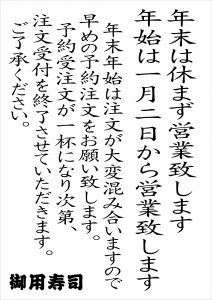 年末は休まず営業致します
年始は一月二日から営業致します
年末年始は注文が大変混み合いますので
早めの予約注文をお願い致します。
予約受注文が一杯になり次第、
注文受付を終了させていただきます。
ご了承ください。
御用寿司